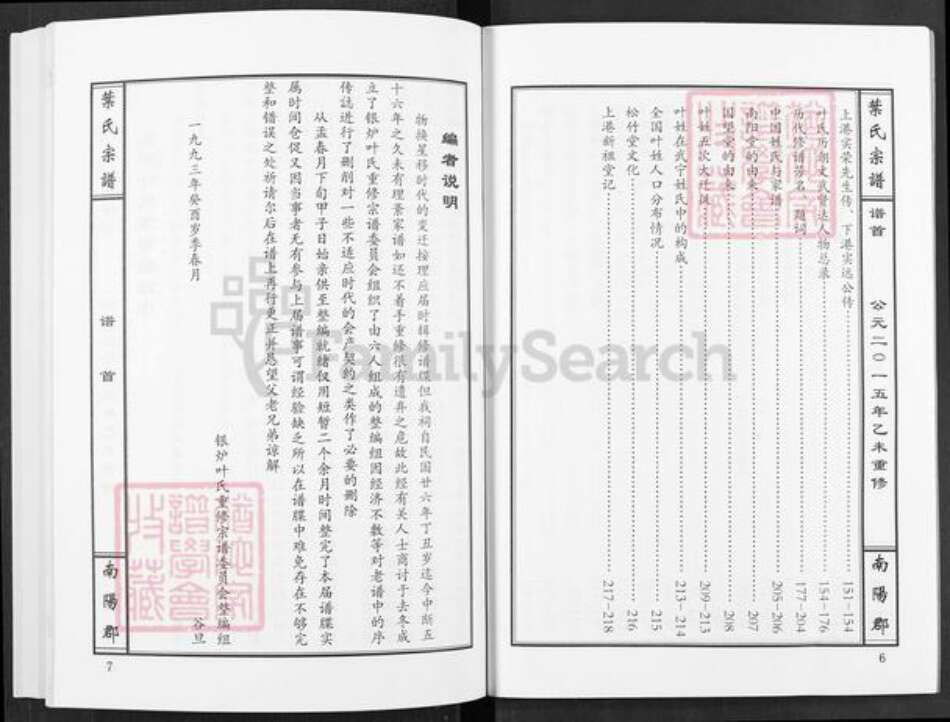 葉氏宗譜
谱首
公元二〇一五年乙未重修
南陽郡
6
上港实荣先生传、下港实远公传 151-154
叶氏历朝文武贤达人物总录 154-176
历代修谱芳名、题词 177-204
中国姓氏与家谱 205-206
南阳堂的由来 207
国望堂的由来 208
叶姓五次大迁徙 209-213
叶姓在武宁姓氏中的构成 213-214
全国叶姓人口分布情况 215
松竹堂文化 216
上港新祖堂记 217-218
编者说明
物换星移时代的变迁按理应届时辑修谱牒但我祠自民国廿六年丁丑岁迄今中断五
十六年之久未有理景家谱如还不着手重修很有遗弃之危故此经有关人士商讨于去冬成
立了银炉叶氏重修宗谱委员会组织了由六人组成的整编组因经济不敷等对老谱中的序
传誌进行了删削对一些不适应时代的会产契约之类作了必要的删除
从孟春月下旬甲子日始亲供至整编就绪仅用短暂二个余月时间整完了本届谱牒实
属时间仓促又因当事者尢有参与上届谱事可谓经验缺乏所以在谱牒中难免存在不够完
整和错误之处祈请尔后在谱上再行更正并恳望父老兄弟谅解
一九九三年癸酉岁季春月
银炉叶氏重修宗谱委员会整编组
谷旦
葉氏宗譜
谱首
南陽郡
7
FamilySearch